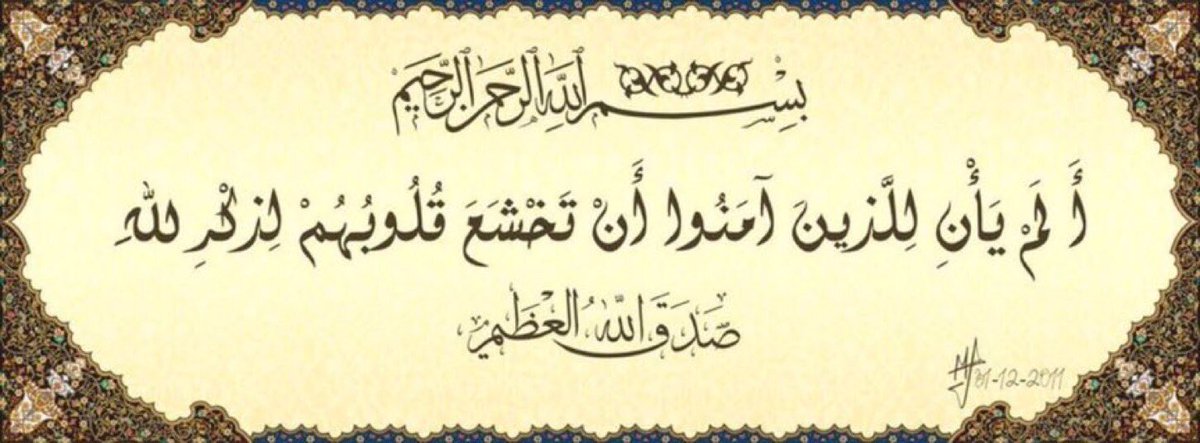 بِسْمِ ٱللَّهِ ٱلرَّحْمَٰنِ ٱلرَّحِيمِ
أَ لَمْ يَأْنِ لِلَّذِينَ آمَنُوا أَنْ تَخْشَعَ قُلُوبُهُمْ لِذِكْرِ للهِ
صَدَقَ اللهُ العَظِيمُ
31-12-2011